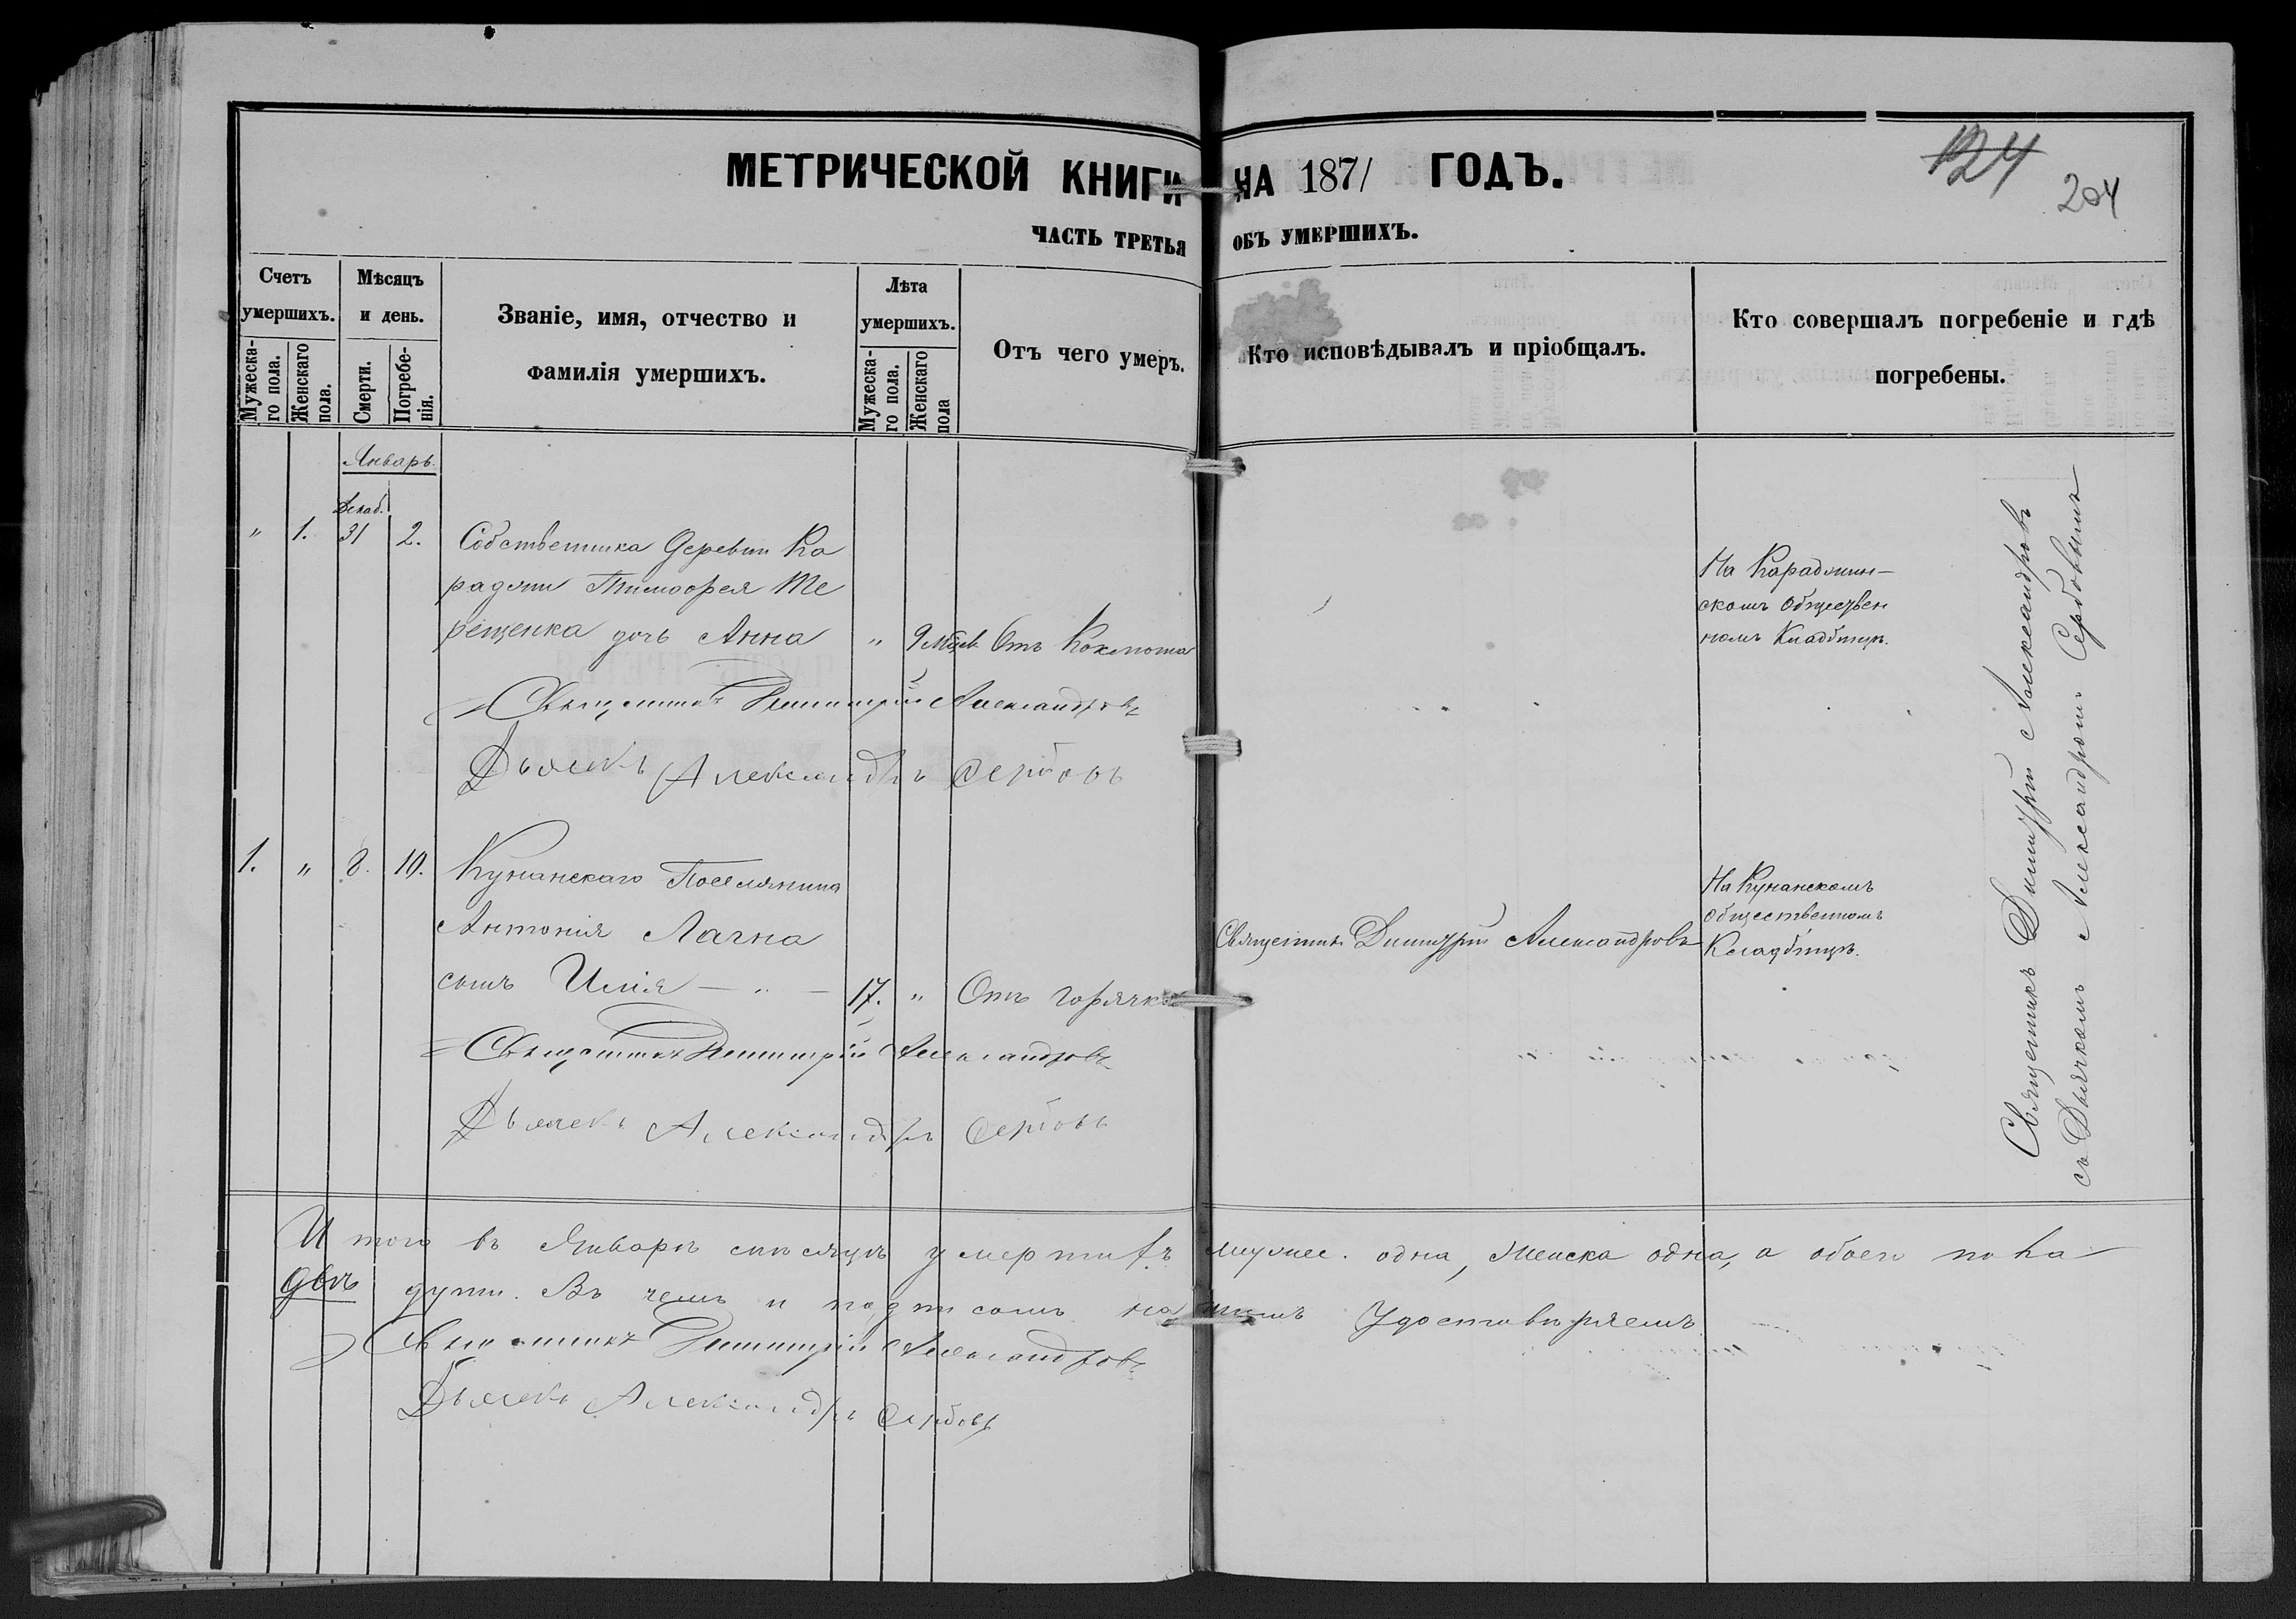 МЕТРИЧЕСКОЙ КНИГИ НА 1871 ГОДЪ.
124
204
ЧАСТЬ ТРЕТЬЯ ОБЪ УМЕРШИХЪ.
Счетъ умершихъ.
Мужеска-го пола.
Женскаго пола.
Мѣсяцъ и день.
Смерти.
Погребе-нія.
Званіе, имя, отчество и
фамилія умершихъ.
Лѣта умершихъ.
Мужеска-го пола.
Женскаго пола
Отъ чего умеръ.
Кто исповѣдывалъ и пріобщалъ.
Кто совершалъ погребеніе и гдѣ
погребены.
Январь.
Декаб.
" 1. 31 2. Собственника Деревни Ка
раджи Тимоѳея Те
рещенка дочь Анна " 9 мѣсяц. Отъ Коклюша
На Караджин-
скомъ Обществен
номъ Кладбищѣ.
Священникъ Димитрій Александровъ
Дьячекъ Александръ Сербовъ
1. " 8. 10. Кунанскаго Поселянина
Антонія Лачна
сынъ Илія — " — 17. " Отъ горячки
Священникъ Димитрій Александровъ
На Кунанскомъ
общественномъ
Кладбищѣ.
Священникъ Димитрій Александровъ
Дьячекъ Александръ Сербовъ
Священникъ Димитрій Александровъ
съ Дьячкомъ Александромъ Сербовымъ
Итого въ Январѣ мѣсяцѣ умершихъ мужес. одна, Женска одна, а обоего пола
двѣ души. Въ чемъ и подписомъ нашимъ Удостовѣряемъ
Священникъ Димитрій Александровъ
Дьячекъ Александръ Сербовъ